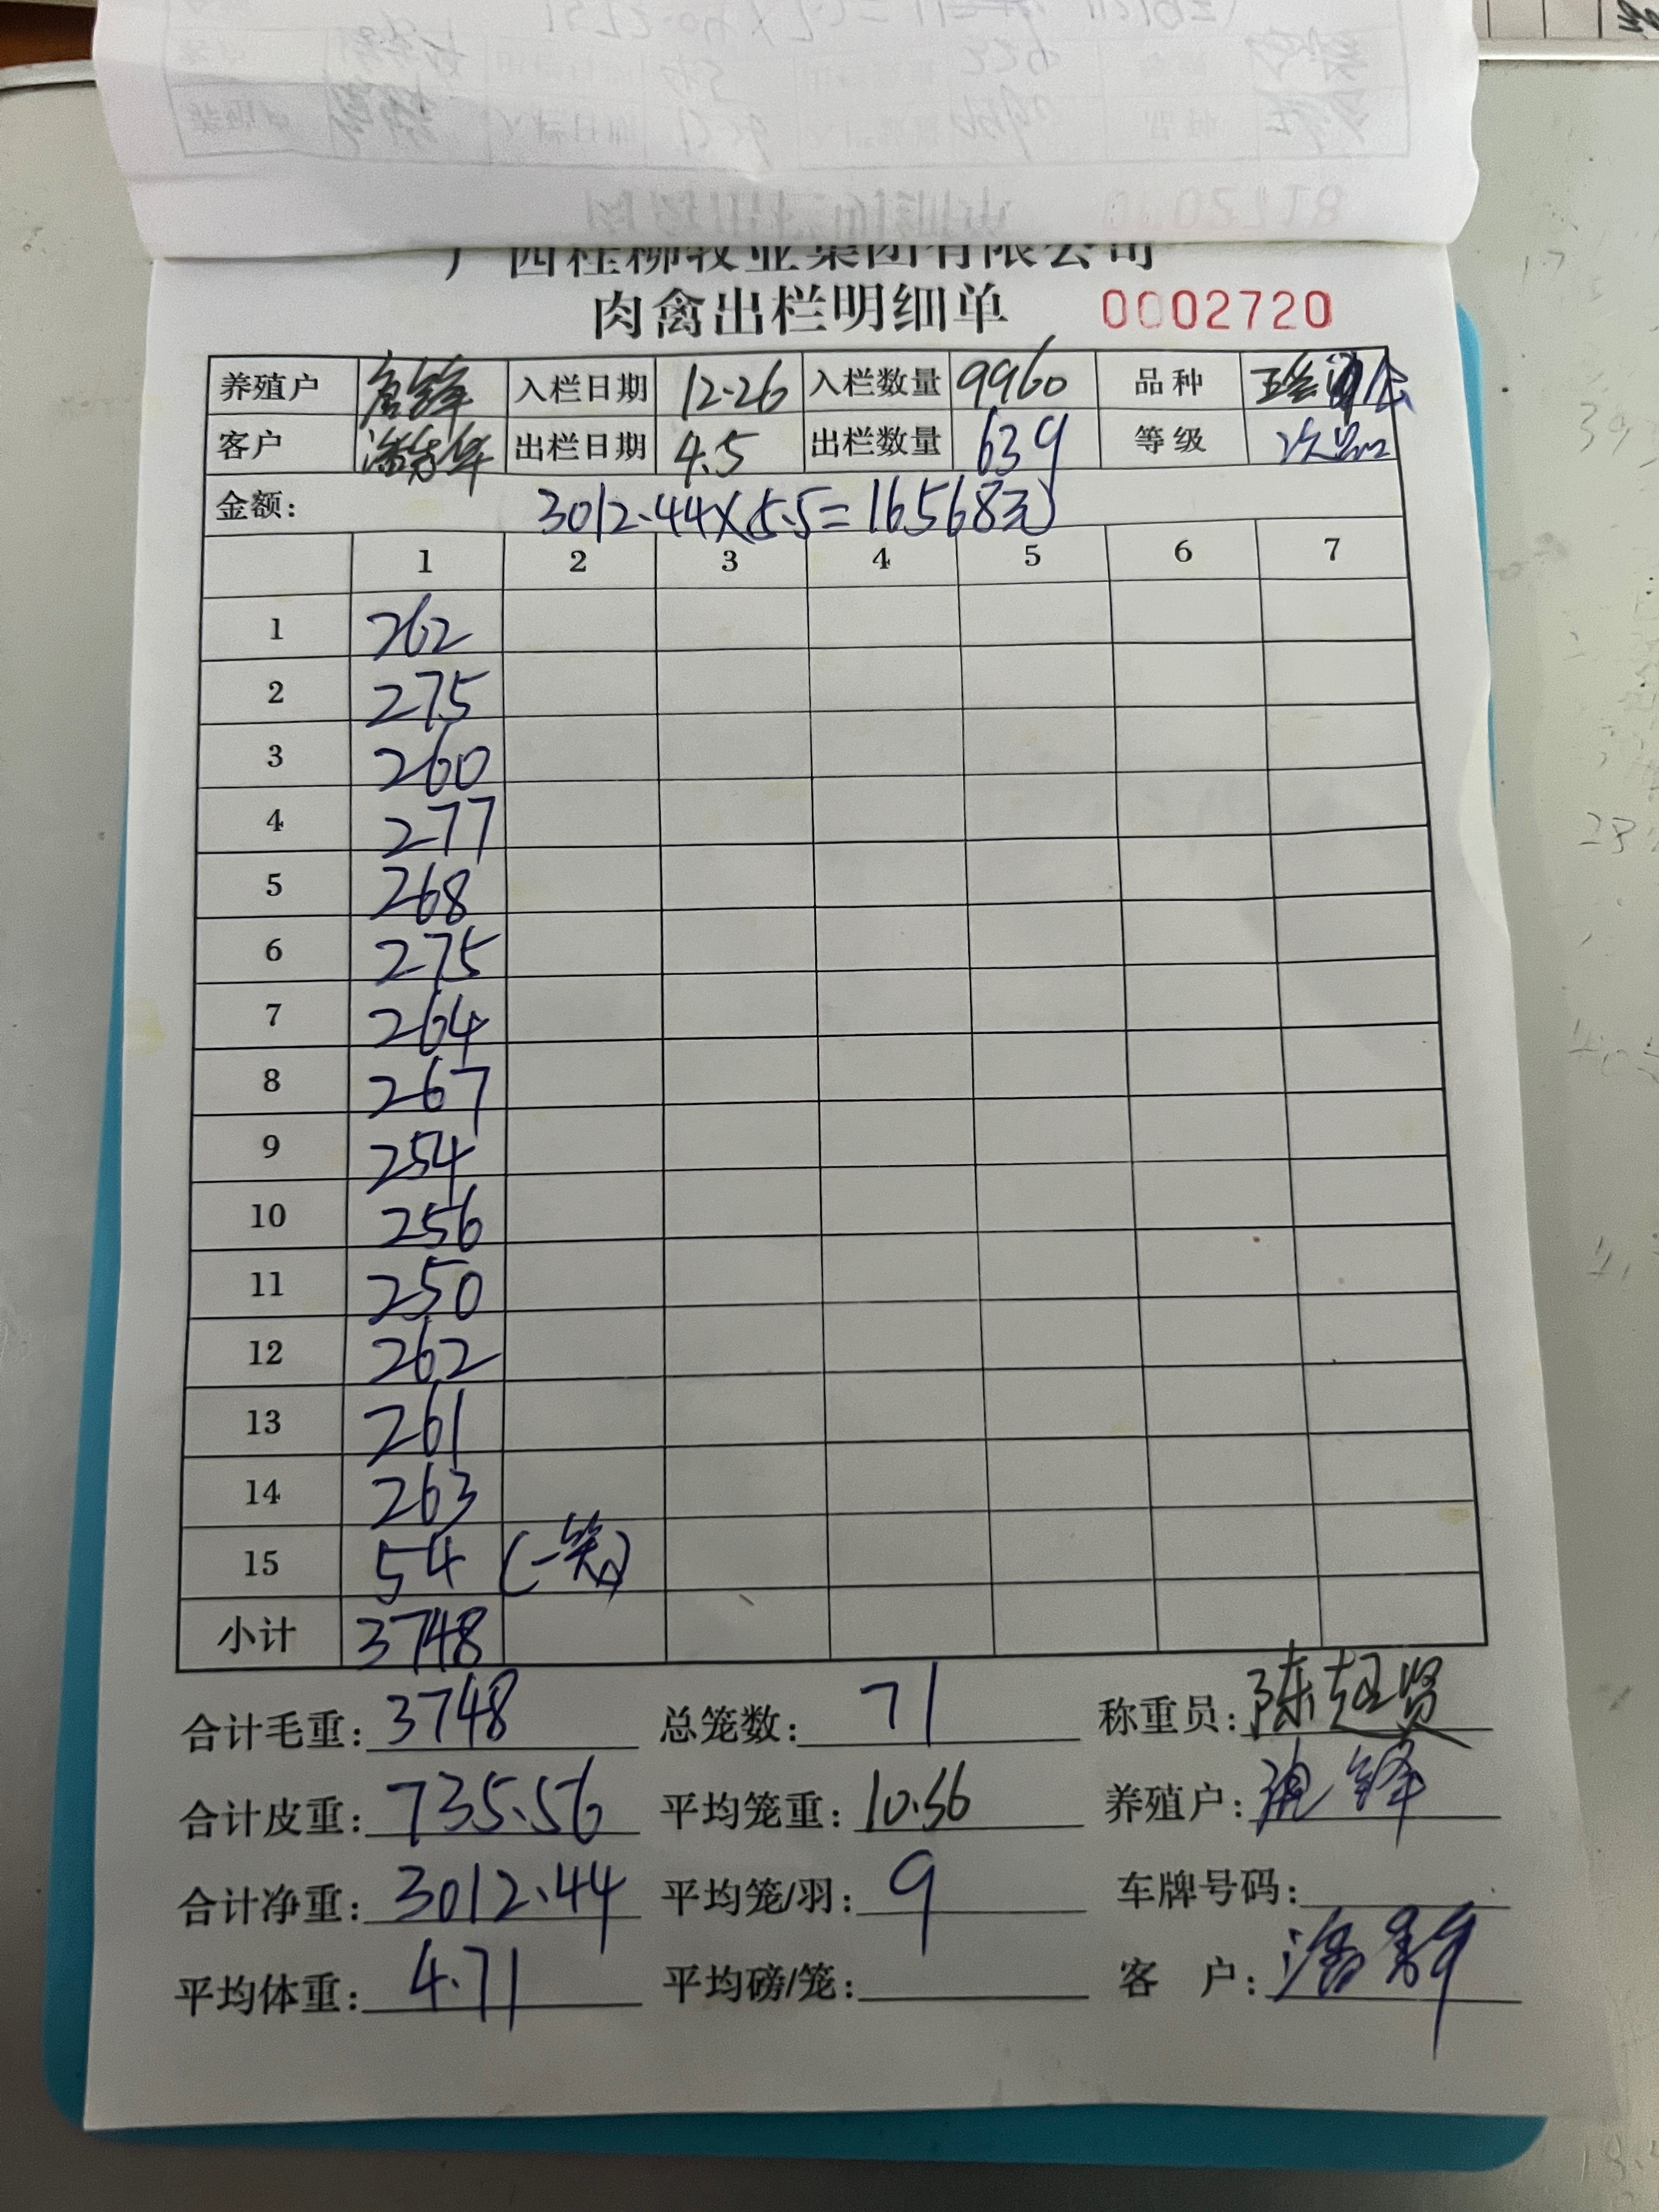 广西桂柳牧业集团有限公司
肉禽出栏明细单 0002720
养殖户 入栏日期 12.26 入栏数量 9960 品种
客户 出栏日期 4.5 出栏数量 639 等级 次品
金额: 3012.44×5.5=16568元
1 2 3 4 5 6 7
1 262
2 275
3 260
4 277
5 268
6 275
7 264
8 267
9 254
10 256
11 250
12 262
13 261
14 263
15 54 (一笼)
小计 3748
合计毛重: 3748 总笼数: 71 称重员: 陈超贤
合计皮重: 735.56 平均笼重: 10.36 养殖户: 锋
合计净重: 3012.44 平均笼/羽: 9 车牌号码:
平均体重: 4.71 平均磅/笼: 客 户: 潘